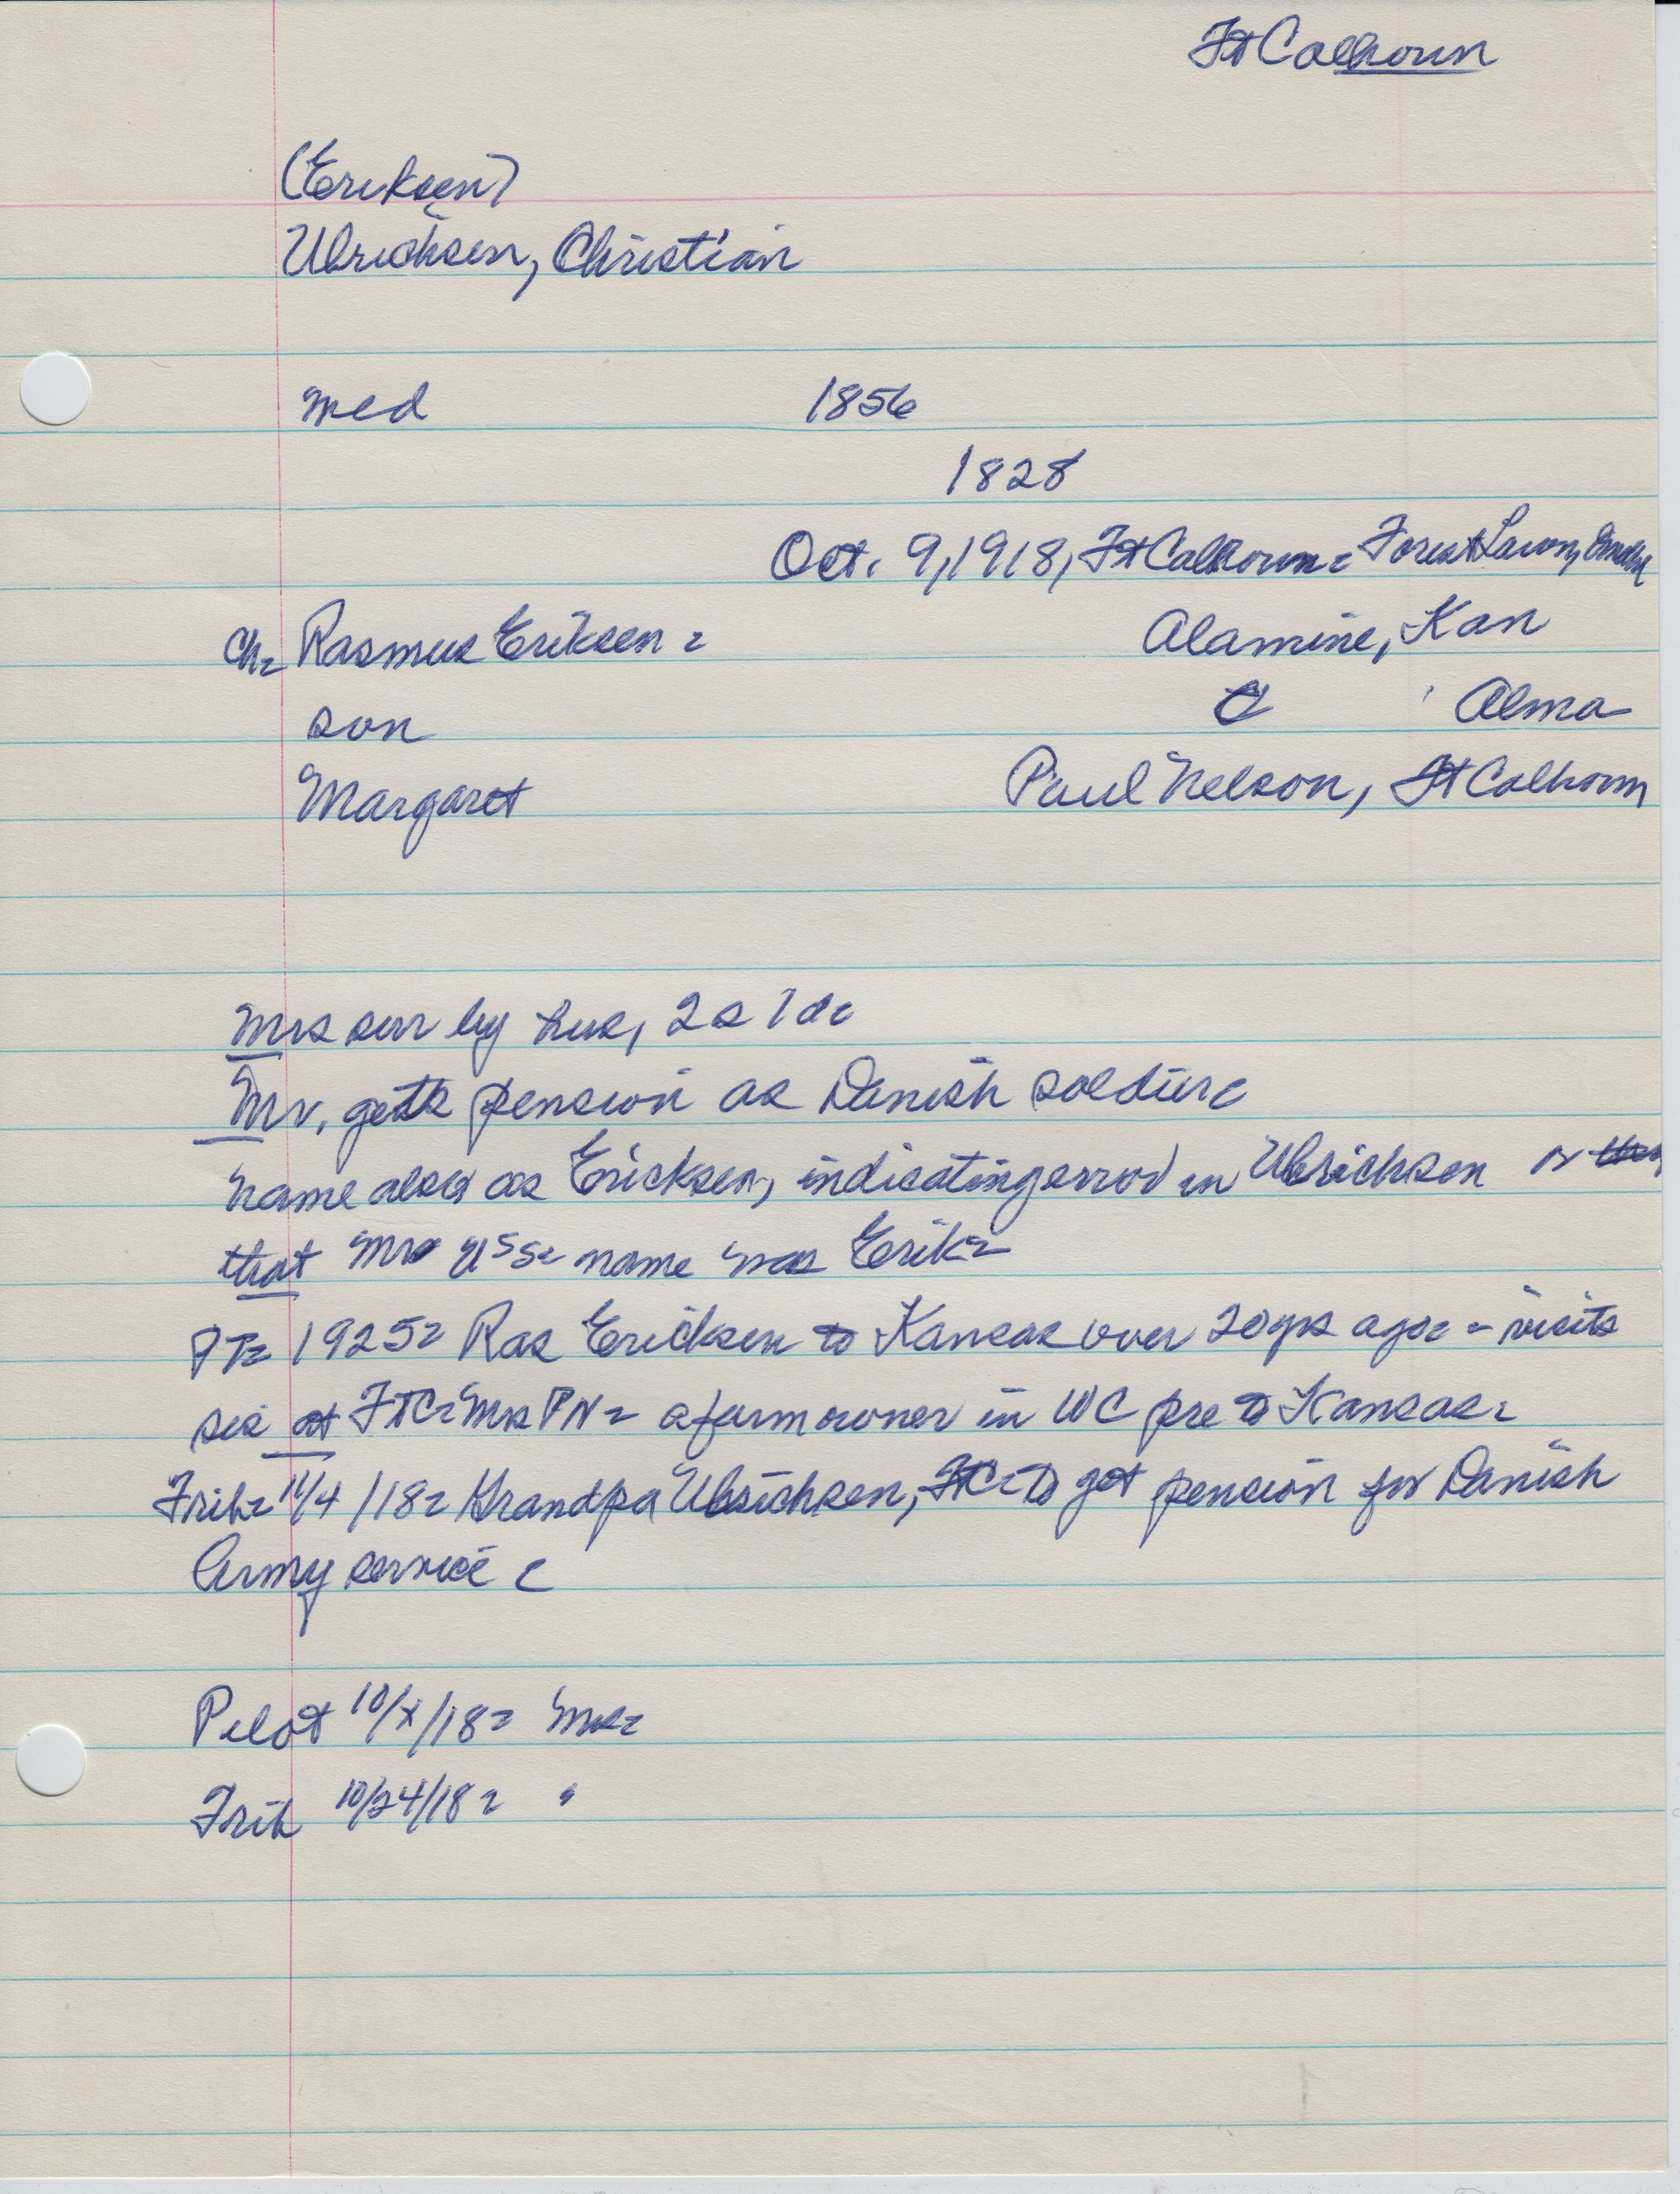 Ft Calhoun
(Eriksen)
Ulrichsen, Christian
med 1856
1828
Oct. 9, 1918, Ft Calhoun = Forest Lawn, Omaha
Ch= Rasmus Eriksen = Alamine, Kan
son Alma
Margaret Paul Nelson, Ft Calhoun
Mrs sur by hus, 2 s 1 d=
Mr, gets pension as Danish soldier=
name also as Ericksen, indicating error in Ulrichsen or
that Mr U's= name was Erik=
PT= 1925= Ras Ericksen to Kansas over 20 yrs ago= - visits
sis at FTC= Mrs PN= a farm owner in WC pre to Kansas=
Trib= 11/4/18= Grandpa Ulrichsen, FtC= to get pension for Danish
Army service =
Pilot 10/x/18= Mrs=
Trib 10/24/18= "